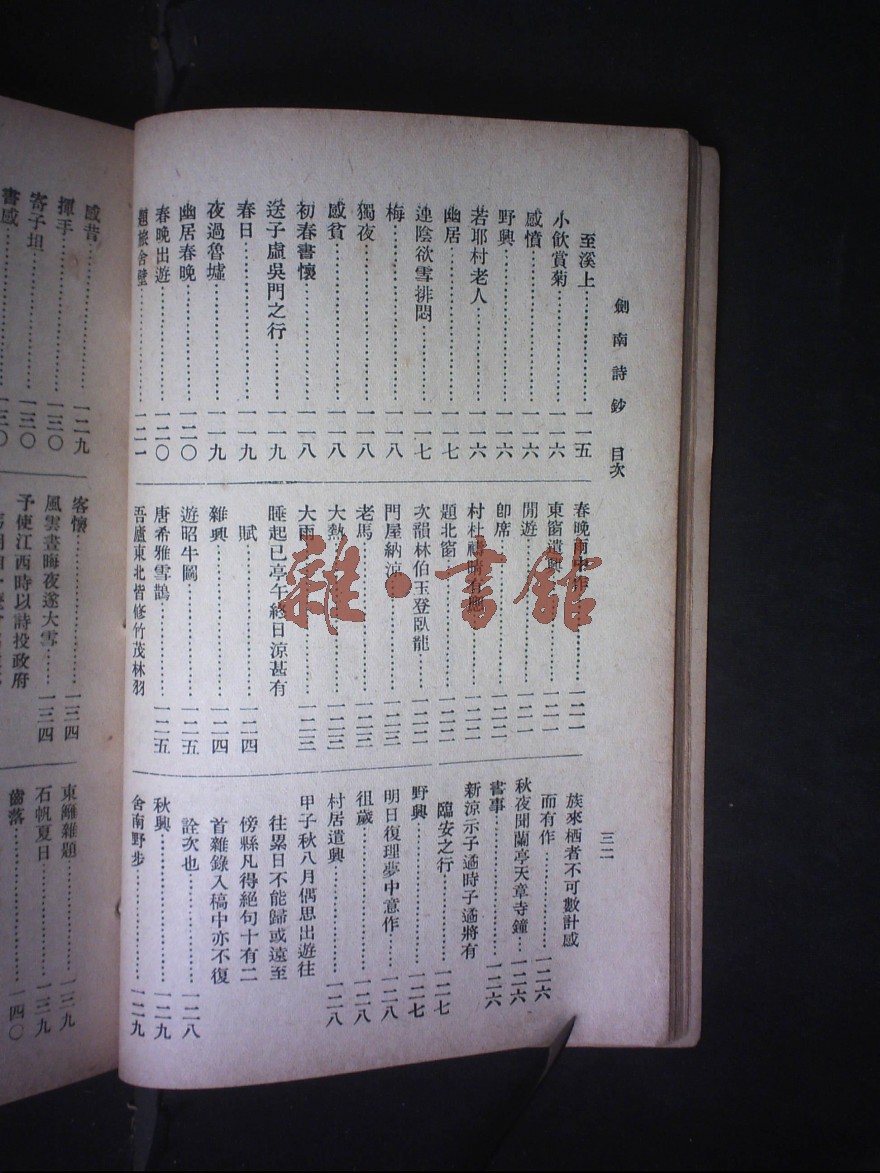 劍南詩鈔 目次
三二
至溪上……一一五
小飲賞菊……一一六
感憤……一一六
野興……一一六
若耶村老人……一一六
幽居……一一七
連陰欲雪排悶……一一七
梅……一一八
獨夜……一一八
感貧……一一八
初春書懷……一一八
送子虡吳門之行……一一九
春日……一一九
夜過魯墟……一一九
幽居春晚……一二〇
春晚出遊……一二〇
題旅舍壁……一二一
春晚雨中作……一二一
東窗遣興……一二一
閒遊……一二一
卽席……一二二
村社禱晴有應……一二二
題北窗……一二二
次韻林伯玉登臥龍……一二二
門屋納涼……一二三
老馬……一二三
大熱……一二三
大雨……一二三
睡起已亭午終日涼甚有
賦……一二四
雜興……一二四
遊昭牛圖……一二五
唐希雅雪鵲……一二五
吾廬東北皆修竹茂林羽
族來栖者不可數計感
而有作……一二六
秋夜聞蘭亭天章寺鐘……一二六
書事……一二六
新涼示子遹時子遹將有
臨安之行……一二七
野興……一二七
明日復理夢中意作……一二八
徂歲……一二八
村居遣興……一二八
甲子秋八月偶思出遊往
往累日不能歸或遠至
傍縣凡得絕句十有二
首雜錄入稿中亦不復
詮次也……一二八
秋興……一二九
舍南野步……一二九
感昔……一二九
揮手……一三〇
寄子坦……一三〇
書感……一三〇
客懷……一三四
風雲晝晦夜遂大雪……一三四
予使江西時以詩投政府
東籬雜題……一三九
石帆夏日……一三九
齒落……一四〇
雜·書館